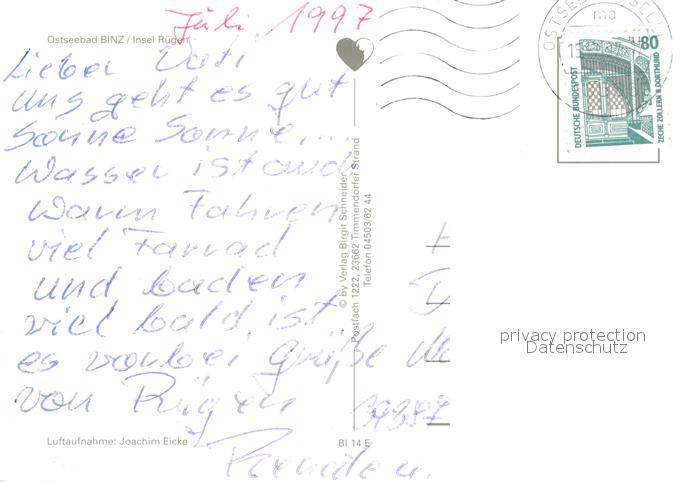 Juli 1997
Ostseebad BINZ / Insel Rügen
Lieber Vati
uns geht es gut
Sonne Sonne....
Wasser ist auch
Warm Fahren
viel Farrad
und baden
viel bald ist
es vorbei Grüße
von Rügen
Luftaufnahme: Joachim Eicke
BI 14 E
© by Verlag Birgit Schneider
Postfach 1222, 23662 Timmendorfer Strand
Telefon 04503/62 44
OSTSEEBAD
80
DEUTSCHE BUNDESPOST
ZECHE ZOLLERN II DORTMUND
privacy protection
Datenschutz